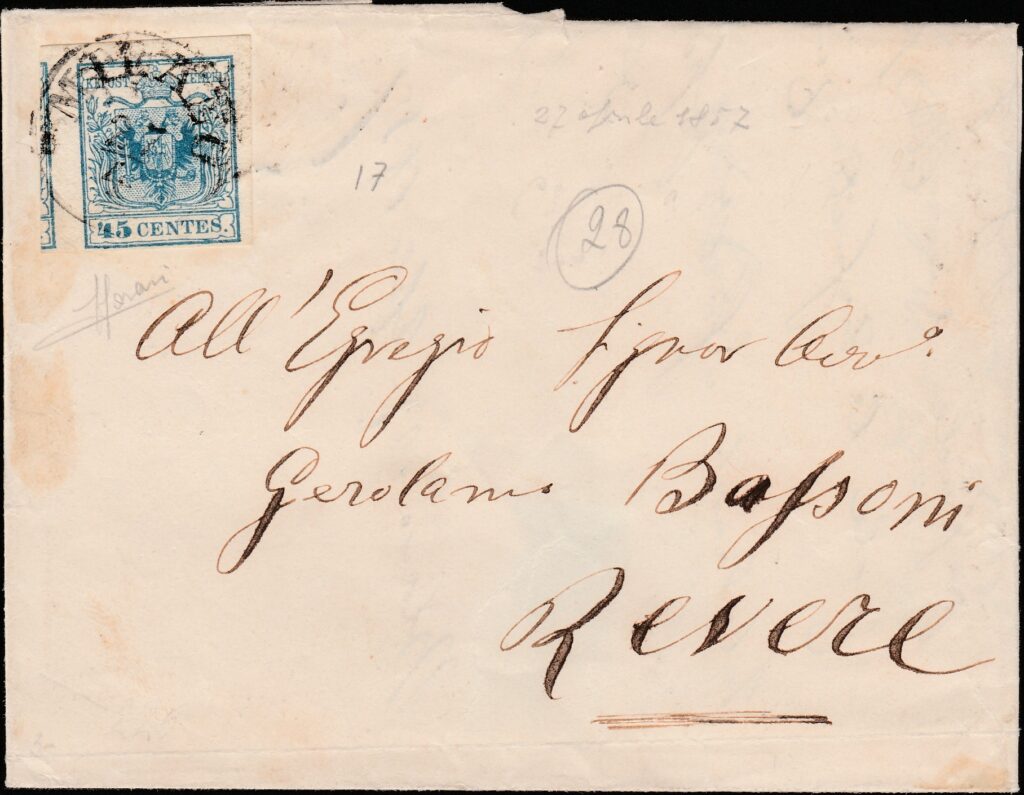 MILANO
KK POST-STEMPEL
45 CENTES.
27 aprile 1857
17
28
All'Egregio Signor Avv.º
Gerolamo Bassoni
Revere